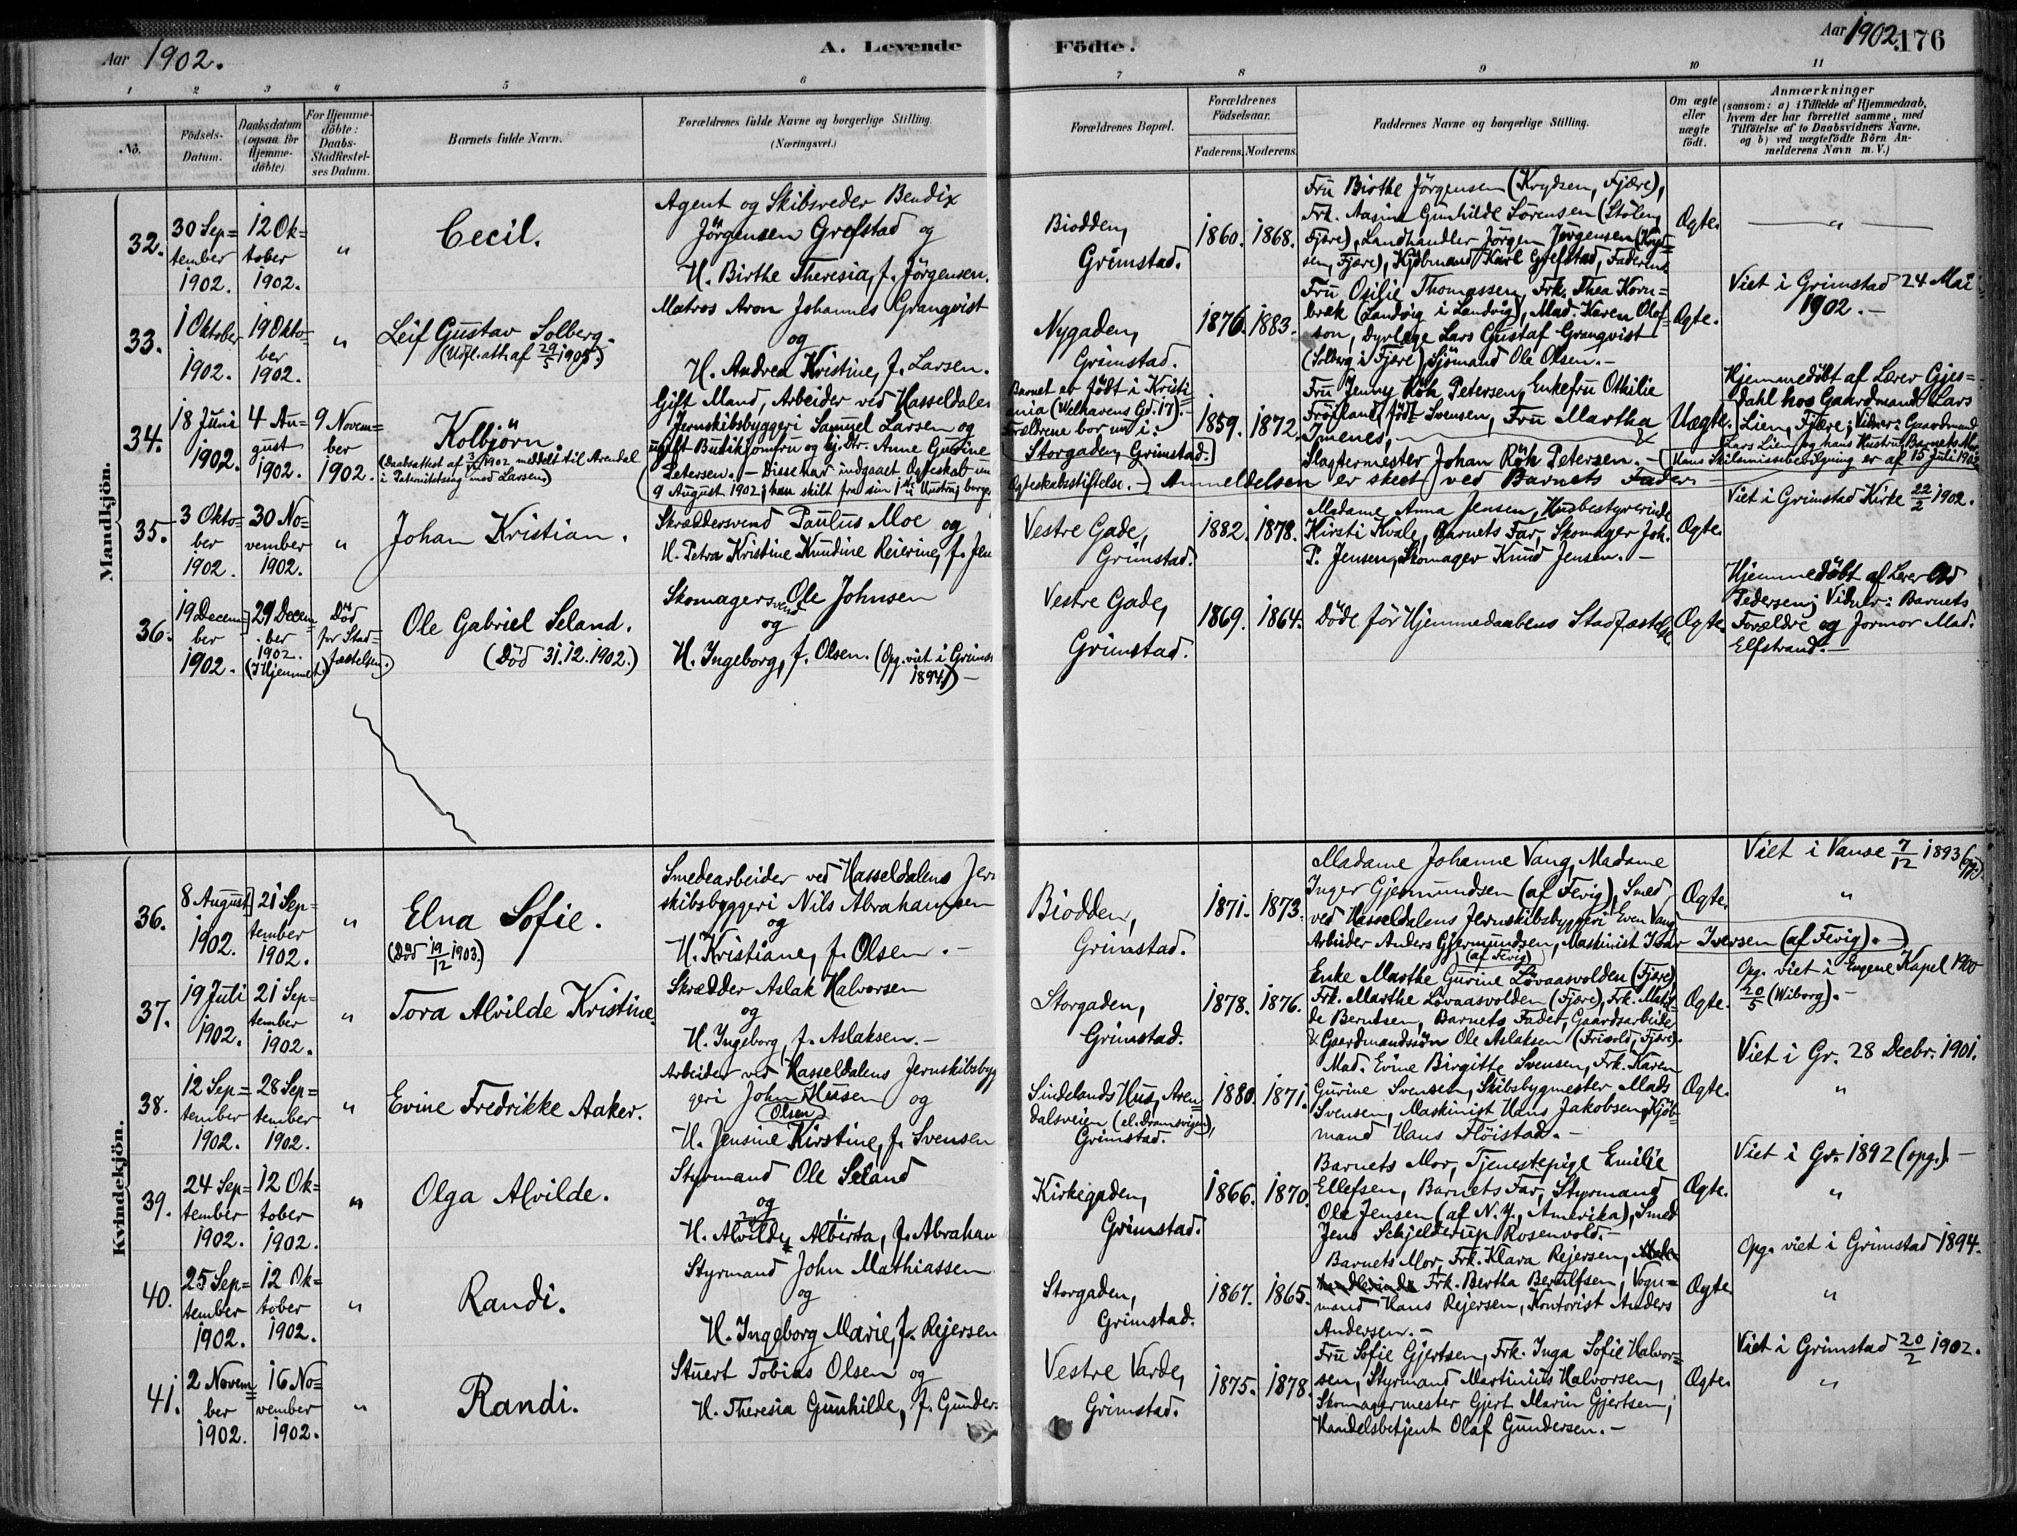 Aar 1902.
A. Levende Födte.
Aar 1902. 176
1 2 3 4 5 6 7 8 9 10 11
No.
Födsels-Datum.
Daabsdatum (ogsaa for Hjemme-döbte)
For Hjemme-döbte: Daabs-Stadfæstel-ses Datum.
Barnets fulde Navn.
Forældrenes fulde Navne og borgerlige Stilling. (Næringsvei.)
Forældrenes Bopæl.
Forældrenes Födselsaar.
Faderens. Moderens.
Faddernes Navne og borgerlige Stilling.
Om ægte eller uægte födt.
Anmærkninger
(saasom: a) i Tilfælde af Hjemmedaab,
hvem der har forrettet samme, med
Tilföielse af to Daabsvidners Navne,
og b) ved uægtefödte Börn An-
melderens Navn m. V.)
Mandkjön.
32.
30 Sep=
tember
1902.
12 Ok=
tober
1902.
"
Cecil.
Agent og Skibsreder Bendix
Jörgensen Grefstad og
H. Birthe Theresia, f. Jörgensen.
Biodden,
Grimstad.
1860. 1868.
Fru Birthe Jörgensen (Krydsen, Fjære),
Frk. Aasine Gunhilde Sörensen (Stölen,
Fjære), Landhandler Jörgen Jörgensen (Kryd=
sen, Fjære), Kjöbmand Karl Grefstad, Faderen.
Ægte.
"
33.
1 Oktober
1902.
19 Okto=
ber
1902.
"
Leif Gustav Solberg.
(Udf. att. af 29/5 1905.)
Matros Aron Johannes Granqvist
og
H. Andrea Kristine, f. Larsen.
Nygaden,
Grimstad.
1876. 1883.
Fru Otilie Thomassen, Frk. Thea Korn=
bræk (Landvig i Landvig), Mad. Karen Olof=
son, Dyrlæge Lars Gustaf Granqvist
(Solberg i Fjære), Sjömand Ole Olsen.-
Ægte.
Viet i Grimstad 24 Mai
1902.-
34.
18 Juni
1902.
4 Au=
gust
1902.
9 Novem=
ber
1902.
Kolbjörn.
(Daabsattest af 1902 meddelt til Arendal
i Paternitetssag mod Larsen)
Gift Mand, Arbeider ved Hasseldalen
Jernskibsbyggeri Samuel Larsen og
ugift Butikjomfru og Anne Gusine
Petersen.- Disse har indgaaet Ægteskab
9 August 1902; han skilt fra sin 1ste Hustru,
Barnet er födt i Kristi
ania (Welhavens Gd. 17).
Forældrene bor nu i:
Storgaden, Grimstad.
Ægteskabsstiftelse.- Anmeldelsen er skeet ved Barnets Fader
1859. 1872.
Fru Jenny Röh Petersen, Enkefru Othilie
Fröiland, födt Svensen, Fru Martha
Imenes,
Slagtermester Johan Röh Petersen.-
Uægte.
Hjemmedöbt af Lærer Gjes=
dahl hos Gaardmand Lars
Lien, Fjære; Vidner: Gaardmand
Lars Lien og hans Hustru, Barnets Mo.
Hans Skilsmissebevilgning er af 15 Juli 1902
35.
3 Okto=
ber
1902.
30 No=
vember
1902.
"
Johan Kristian.
Skræddersvend Paulus Moe og
H. Petra Kristine Knudine Reierine, f. Jen
Vestre Gade,
Grimstad.
1882. 1878.
Madame Anna Jensen, Husbestyrerinde
Kirsti Kvale, Barnets Far, Skomager Joh.
P. Jensen, Skomager Knud Jensen.-
Ægte.
Viet i Grimstad Kirke 22/2 1902.
36.
19 Decem
ber
1902.
29 Decem
ber
1902.
(I Hjemmet)
Död
för Stad=
fæstelsen.)
Ole Gabriel Seland.
(Död 31.12.1902.)
Skomagersvend Ole Johnsen
og
H. Ingeborg, f. Olsen. (Opg. viet i Grims
1894.)-
Vestre Gade,
Grimstad.
1869. 1864.
Döde för Hjemmedaabens Stadfæstelse
Ægte.
Hjemmedöbt af Lærer
Pedersen; Vidner: Barnets
Forældre og Jormor Mad.
Elfstrand.-
Kvindekjön.
36.
8 August
1902.
21 Sep=
tember
1902.
"
Elna Sofie.
(Död 19/12 1903.)
Smedearbeider ved Hasseldalens Jern
skibsbyggeri Nils Abrahamsen
og
H. Kristiane, f. Olsen.-
Biodden,
Grimstad.
1871. 1873.
Madame Johanne Vang, Madame
Inger Gjermundsen (af Fevig), Smed
ved Hasseldalens Jernskibsbyggeri Even Vang
Arbeider Anders Gjermundsen, Maskinist Ivar Iversen (af Fevig).-
(af Fevig)
Ægte.
Viet i Vanse 7/12 1893
"
37.
19 Juli
1902.
21 Sep=
tember
1902.
"
Tora Alvilde Kristine.
Skrædder Aslak Halvorsen
og
H. Ingeborg, f. Aslaksen.-
Storgaden,
Grimstad.
1878. 1876.
Enke Marthe Gurine Lövaasvolden (Fjære),
Frk. Marthe Lövaasvolden (Fjære), Frk. Matil=
de Berntsen, Barnets Fader, Gaardsarbeider
& Gaardmandssön Ole Aslaksen (Frivold, Fjære).
Ægte.
Opg. viet i Engene Kapel 1900
20/5 (Wiborg).-
38.
12 Sep=
tember
1902.
28 Sep=
tember
1902.
"
Evine Fredrikke Aaker.
Arbeider ved Hasseldalens Jernskibsbyg
geri John Husen og
(Olsen)
H. Jensine Kirstine, f. Svensen
Sindelands Hus, Aren=
dalsveien (el. Dramsvigen),
Grimstad.
1880. 1871.
Mad. Evine Birgitte Svensen, Frk. Karen
Gurine Svensen, Skibsbygmester Mads
Svensen, Maskinist Hans Jakobsen, Kjöb=
mand Hans Flöistad.-
Ægte.
Viet i Gr. 28 Decbr. 1901.
"
39.
24 Sep=
tember
1902.
12 Ok=
tober
1902.
"
Olga Alvilde.
Styrmand Ole Seland
og
H. Alvilde Alberta, f. Abraham
Kirkegaden,
Grimstad.
1866. 1870.
Barnets Mor, Tjenestepige Emilie
Ellefsen, Barnets Far, Styrmand
Ole Jensen (af N.Y., Amerika), Smed
Jens Schjelderup Rosenvold.-
Ægte.
Viet i Gr. 1892 (opg.).-
"
40.
25 Sep=
tember
1902.
12 Ok=
tober
1902.
"
Randi.
Styrmand John Mathiassen
og
H. Ingeborg Marie, f. Rejersen
Storgaden,
Grimstad.
1867. 1865.
Barnets Mor, Frk. Klara Rejersen,
Frk. Bertha Berulfsen, Vogn=
mand Hans Rejersen, Kontorist Anders
Andersen.-
Ægte
Opg. viet i Grimstad 1894.
"
41.
2 Novem
ber
1902.
16 No=
vember
1902.
"
Randi.
Stuert Tobias Olsen og
H. Theresia Gunhilde, f. Gunder
Vestre Varde,
Grimstad.
1875. 1878.
Fru Sofie Gjertsen, Frk. Inga Sofie Halvor=
sen, Styrmand Martinius Halvorsen,
Skomagermester Gjert Marin Gjertsen,
Handelsbetjent Olaf Gundersen.-
Ægte.
Viet i Grimstad 20/2 1902.
"